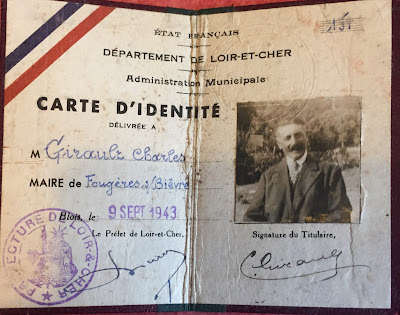 ÉTAT FRANÇAIS
DÉPARTEMENT DE LOIR-ET-CHER
Administration Municipale
CARTE D'IDENTITÉ
DÉLIVRÉE A
M Girault Charles
MAIRE de Fougères s/Bièvre
Blois, le 9 SEPT 1943
Le Préfet de Loir-et-Cher,
PREFECTURE DE LOIR-&-CHER
Signature du Titulaire,
C. Girault